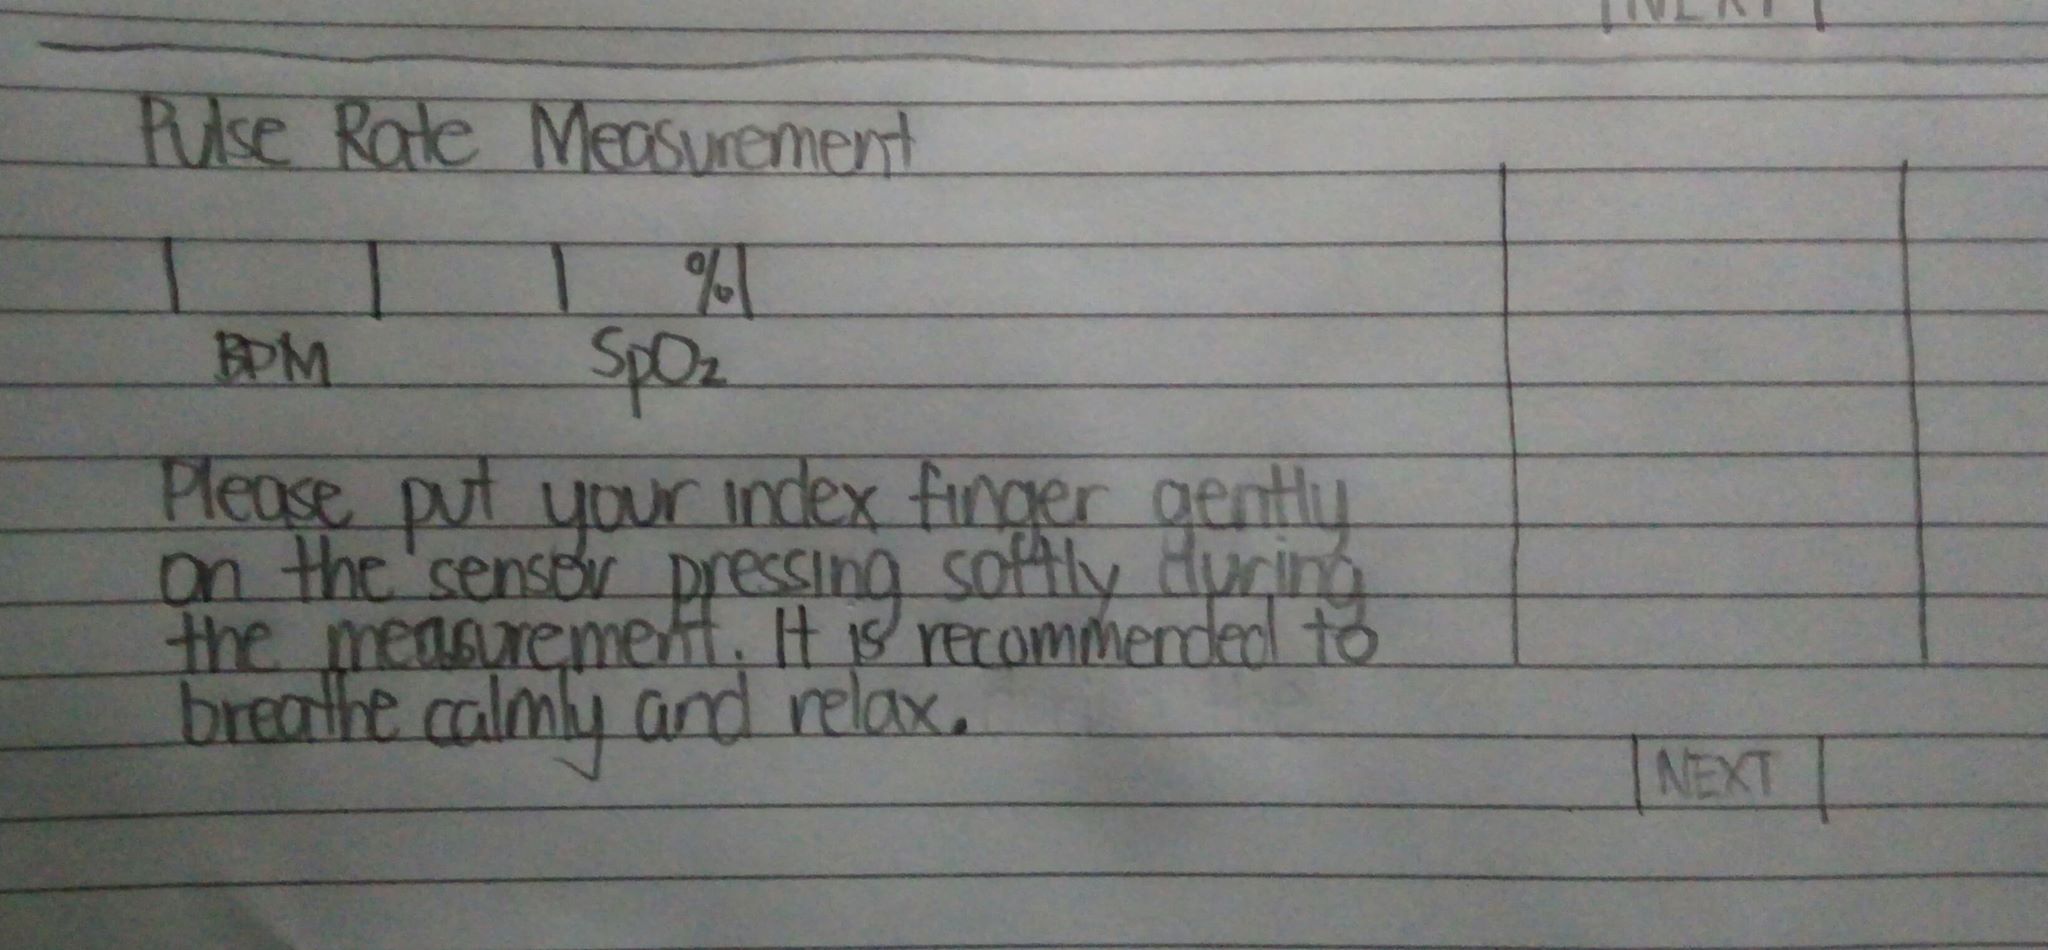 NEXT
Pulse Rate Measurement
%
BPM SpO₂
Please put your index finger gently
on the sensor pressing softly during
the measurement. It is recommended to
breathe calmly and relax.
NEXT